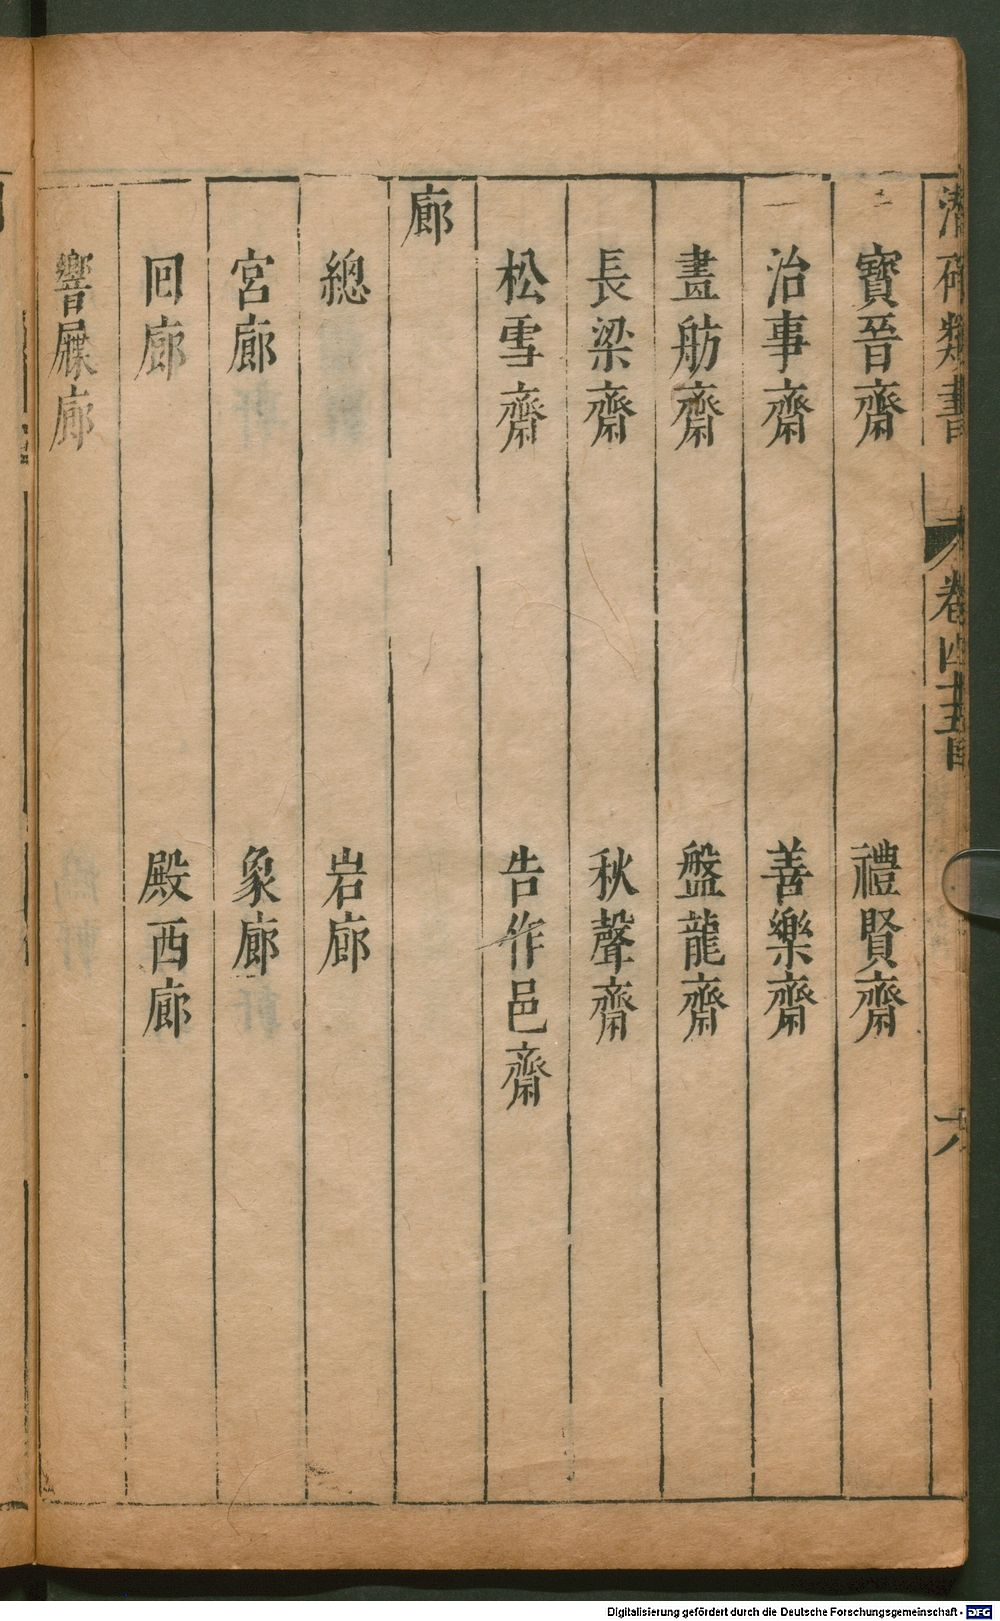 潛確類書 卷四十五目 六
寶晉齋 禮賢齋
治事齋 善樂齋
畫舫齋 盤龍齋
長梁齋 秋聲齋
松雪齋 告作邑齋
廊
總 岩廊
宮廊 象廊
回廊 殿西廊
響屧廊
Digitalisierung gefördert durch die Deutsche Forschungsgemeinschaft - DFG